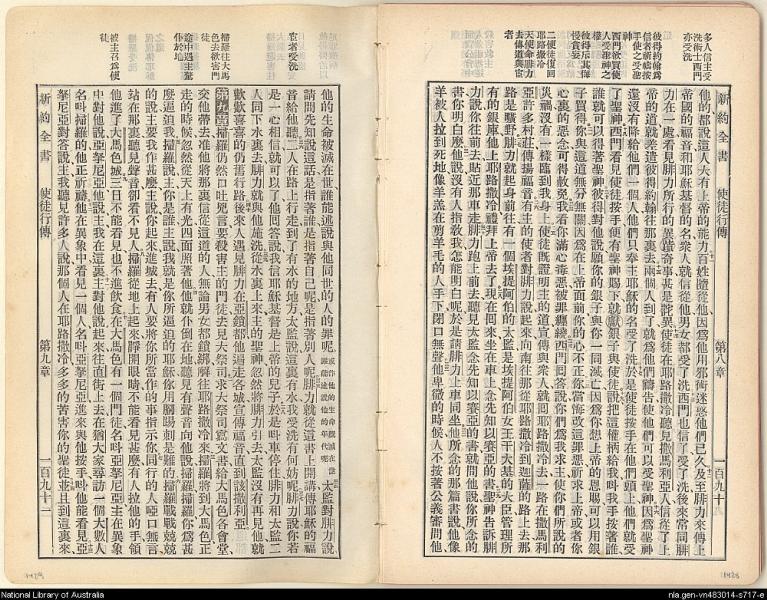 多人信主受
洗術士西門
亦受洗
彼得約翰爲
信者祈禱按
手使之受聖
神
西門欲買使
人受聖神之
權
彼得斥其悔
慢責妄
二使徒復回
耶路撒冷
天使命腓力
去傳道與宦
者
新約全書
使徒行傳
第八章
一百九十一
他的都說這人大有上帝的能力百姓隨從他因爲他用邪術迷惑他們已久及至腓力來傳上
帝國的福音和耶穌基督的名衆人就信從他男女都受了洗西門也信了受了洗後來常同腓
力在一處看見腓力所行的異蹟奇事甚是詫異使徒在耶路撒冷聽見撒馬利亞人信從了上
帝的道就差遣彼得約翰往那裏去兩個人到了就爲他們禱告使他們可以受聖神因爲聖神
還沒有降給他們一個人他們只奉主耶穌的名受了洗於是使徒按手在他們頭上他們就受
了聖神西門看見使徒按手便有聖神賜下就獻銀子與使徒說把這權柄給我叫我手按著誰
誰就可以得著聖神彼得對他說願你的銀子與你一同滅亡因爲你想上帝的恩賜可以用銀
子買得你與這道無分無關因爲在上帝面前你的心不正你當悔改這罪惡祈求上帝或者你
心裏的惡念可得赦免我看你滿心毒惡被罪纏繞西門回答說你們爲我求主使你們所說的
災禍沒有一樣臨到我身上使徒旣證明主的道宣傳與衆人就回耶路撒冷去一路在撒馬利
亞許多村莊傳揚福音有主的使者對腓力說起來向南往那從耶路撒冷到迦薩的路上去那
路是曠野腓力就起身前往有一個埃提阿伯的太監是埃提阿伯女王干大基的大臣管理所
有的銀庫他上耶路撒冷禮拜上帝去了現在回來坐在車上念先知以賽亞的書聖神告訴腓
力說你往前去貼近那車走腓力跑上前去聽見太監念先知以賽亞的書就問他說你所念的
書你明白麼他說沒有人指敎我怎能明白呢於是請腓力上車同坐他所念的那篇書說他像
羊被人拉到死地像羊羔在剪羊毛的人手下閉口無聲他卑微的時候人不按著公義審問他
宦者受洗
掃羅往大馬
色去欲害門
徒
途中遇主驚
仆於地
被主召爲使
徒
他的生命被滅在世誰能述說與他同世的人的罪呢太監對腓力說
請問先知說這話是指著誰是指著自己呢是指著別人呢腓力就從這書上開講傳耶穌的福
音給他聽二人在路上行走到了有水的地方太監說這裏有水我受洗有何妨呢腓力說你若
是一心相信就可以了他回答說我信耶穌基督是上帝的兒子於是叫車停住腓力和太監二
人同下水裏去腓力就與他施洗從水裏上來主的聖神忽然將腓力引去太監沒有再見他就
歡歡喜喜的仍舊行路後來人遇見腓力在亞鎖都他遍走各城宣傳福音直到該撒利亞
第九章掃羅仍然口吐兇言要殺害主的門徒去見大祭司求大祭司寫文書給大馬色各會堂
交他帶去准他將那裏信從這道的人無論男女都鎖綁解往耶路撒冷來掃羅將到大馬色正
走的時候忽然從天上有光四面照著他他就仆倒在地聽見有聲音向他說掃羅掃羅你爲甚
麼逼迫我掃羅說主你是誰主說我就是你所逼迫的耶穌你用腳踢刺是難的掃羅戰戰兢兢
的說主要我作甚麼主說你起來進城去有人要將你所當作的事指示你同行的人啞口無言
站在那裏聽見聲音卻看不見人掃羅從地上起來睜開眼睛不能看見甚麼有人拉他的手領
他進了大馬色城三日不能看見也不進飲食在大馬色有一個門徒名叫亞拏尼亞主在異象
中對他說亞拏尼亞他說主我在這裏主對他說起來往直街上去在猶大家裏訪一個大數人
名叫掃羅的他正祈禱他在異象中看見一個人名叫亞拏尼亞進來與他按手叫他能看見亞
拏尼亞對答說主我聽見許多人說那個人在耶路撒冷多多的苦害你的聖徒並且到這裏來
新約全書
使徒行傳
第九章
一百九十二
National Library of Australia
nla.gen-vn483014-s717-e